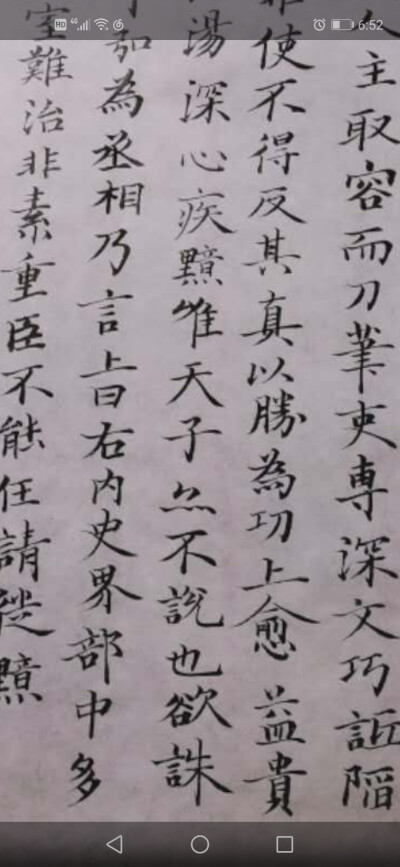 6:52
主取容而刀筆吏専深文巧詆陷
使不得反其真以勝為功上愈益貴
湯深心疾黯唯天子亦不說也欲誅
弘為丞相乃言上曰右内史界部中多
室難治非素重臣不能任請徙黯